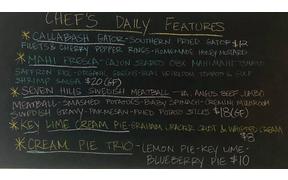 CHEF'S DAILY FEATURES
CALLABASH GATOR-SOUTHERN FRIED GATOR $12
FILETS & CHERRY PEPPER RINGS-HOMEMADE HONEY MUSTARD
MAHI FRESCA-CAJUN SEARED OBX MAHI MAHI-TOMATO
SAFFRON RICE-ORGANIC GREENS-HEIRLOOM TOMATO &
SHRIMP SALSA $20 (GF)
SEVEN HILLS SWEDISH MEATBALL-VA. ANGUS BEEF JUMBO
MEATBALL-SMASHED POTATOES-BABY SPINACH-CREMINI MUSHROOM
SWEDISH GRAVY-PARMESAN-FRIED POTATO STICKS $18 (GF)
KEY LIME CREAM PIE-GRAHAM CRACKER CRUST & WHIPPED CREAM
$8
CREAM PIE TRIO-LEMON PIE-KEY LIME-
BLUEBERRY PIE $10